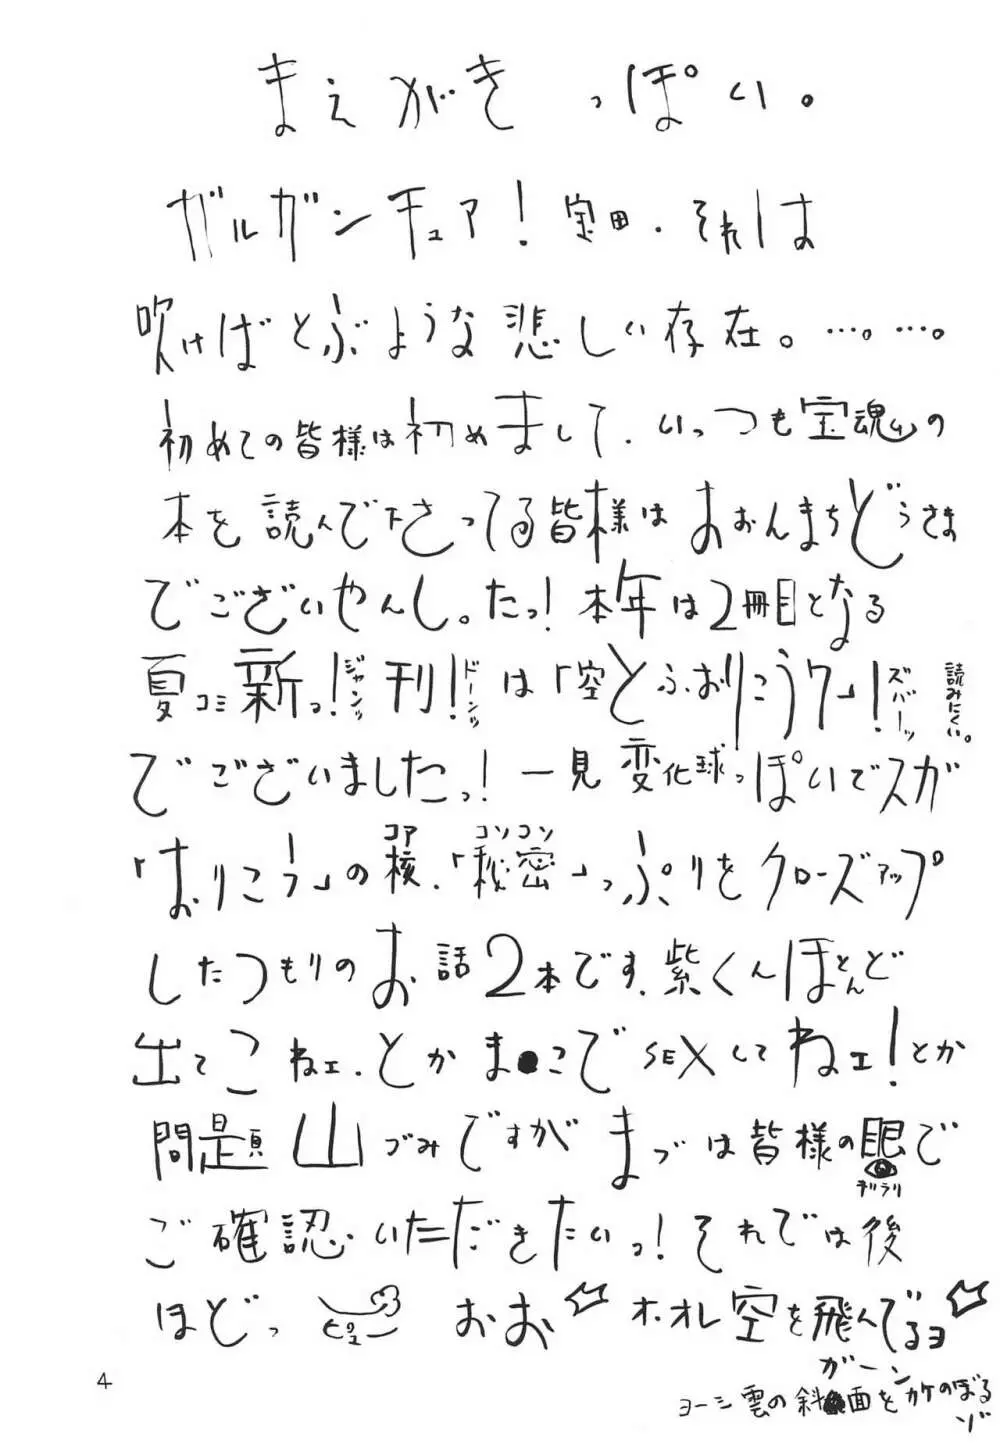 まえがきっぽい。
ガルガンチュア!宝田.それは
吹けばとぶような悲しい存在。…。…。
初めての皆様は初めまして.いっつも宝魂ムの
本を読んで下さってる皆様はおおんまちどうさま
でございやんし。たっ!本年は2冊目となる
夏コミ新っ!ジャンッ刊!ドーンッは「空とふおりこうワ」!ズバーッ
読みにくい。
でございましたっ!一見変化球っぽいでスガ
コア コソコソ
「おりこう」の核.「秘密」っぷりをクローズアップ
したつもりのお話2本です.紫くんほとんど
出てこねェ.とかま●こでSEXしてねェ!とか
問題山づみですがまづは皆様の眼で
ギラリ
ご確認いただきたいっ!それでは後
ほどっ ピュー おお オ、オレ空を飛んでるヨ
ガーン
ヨーシ雲の斜面をカケのぼる
ゾ
4